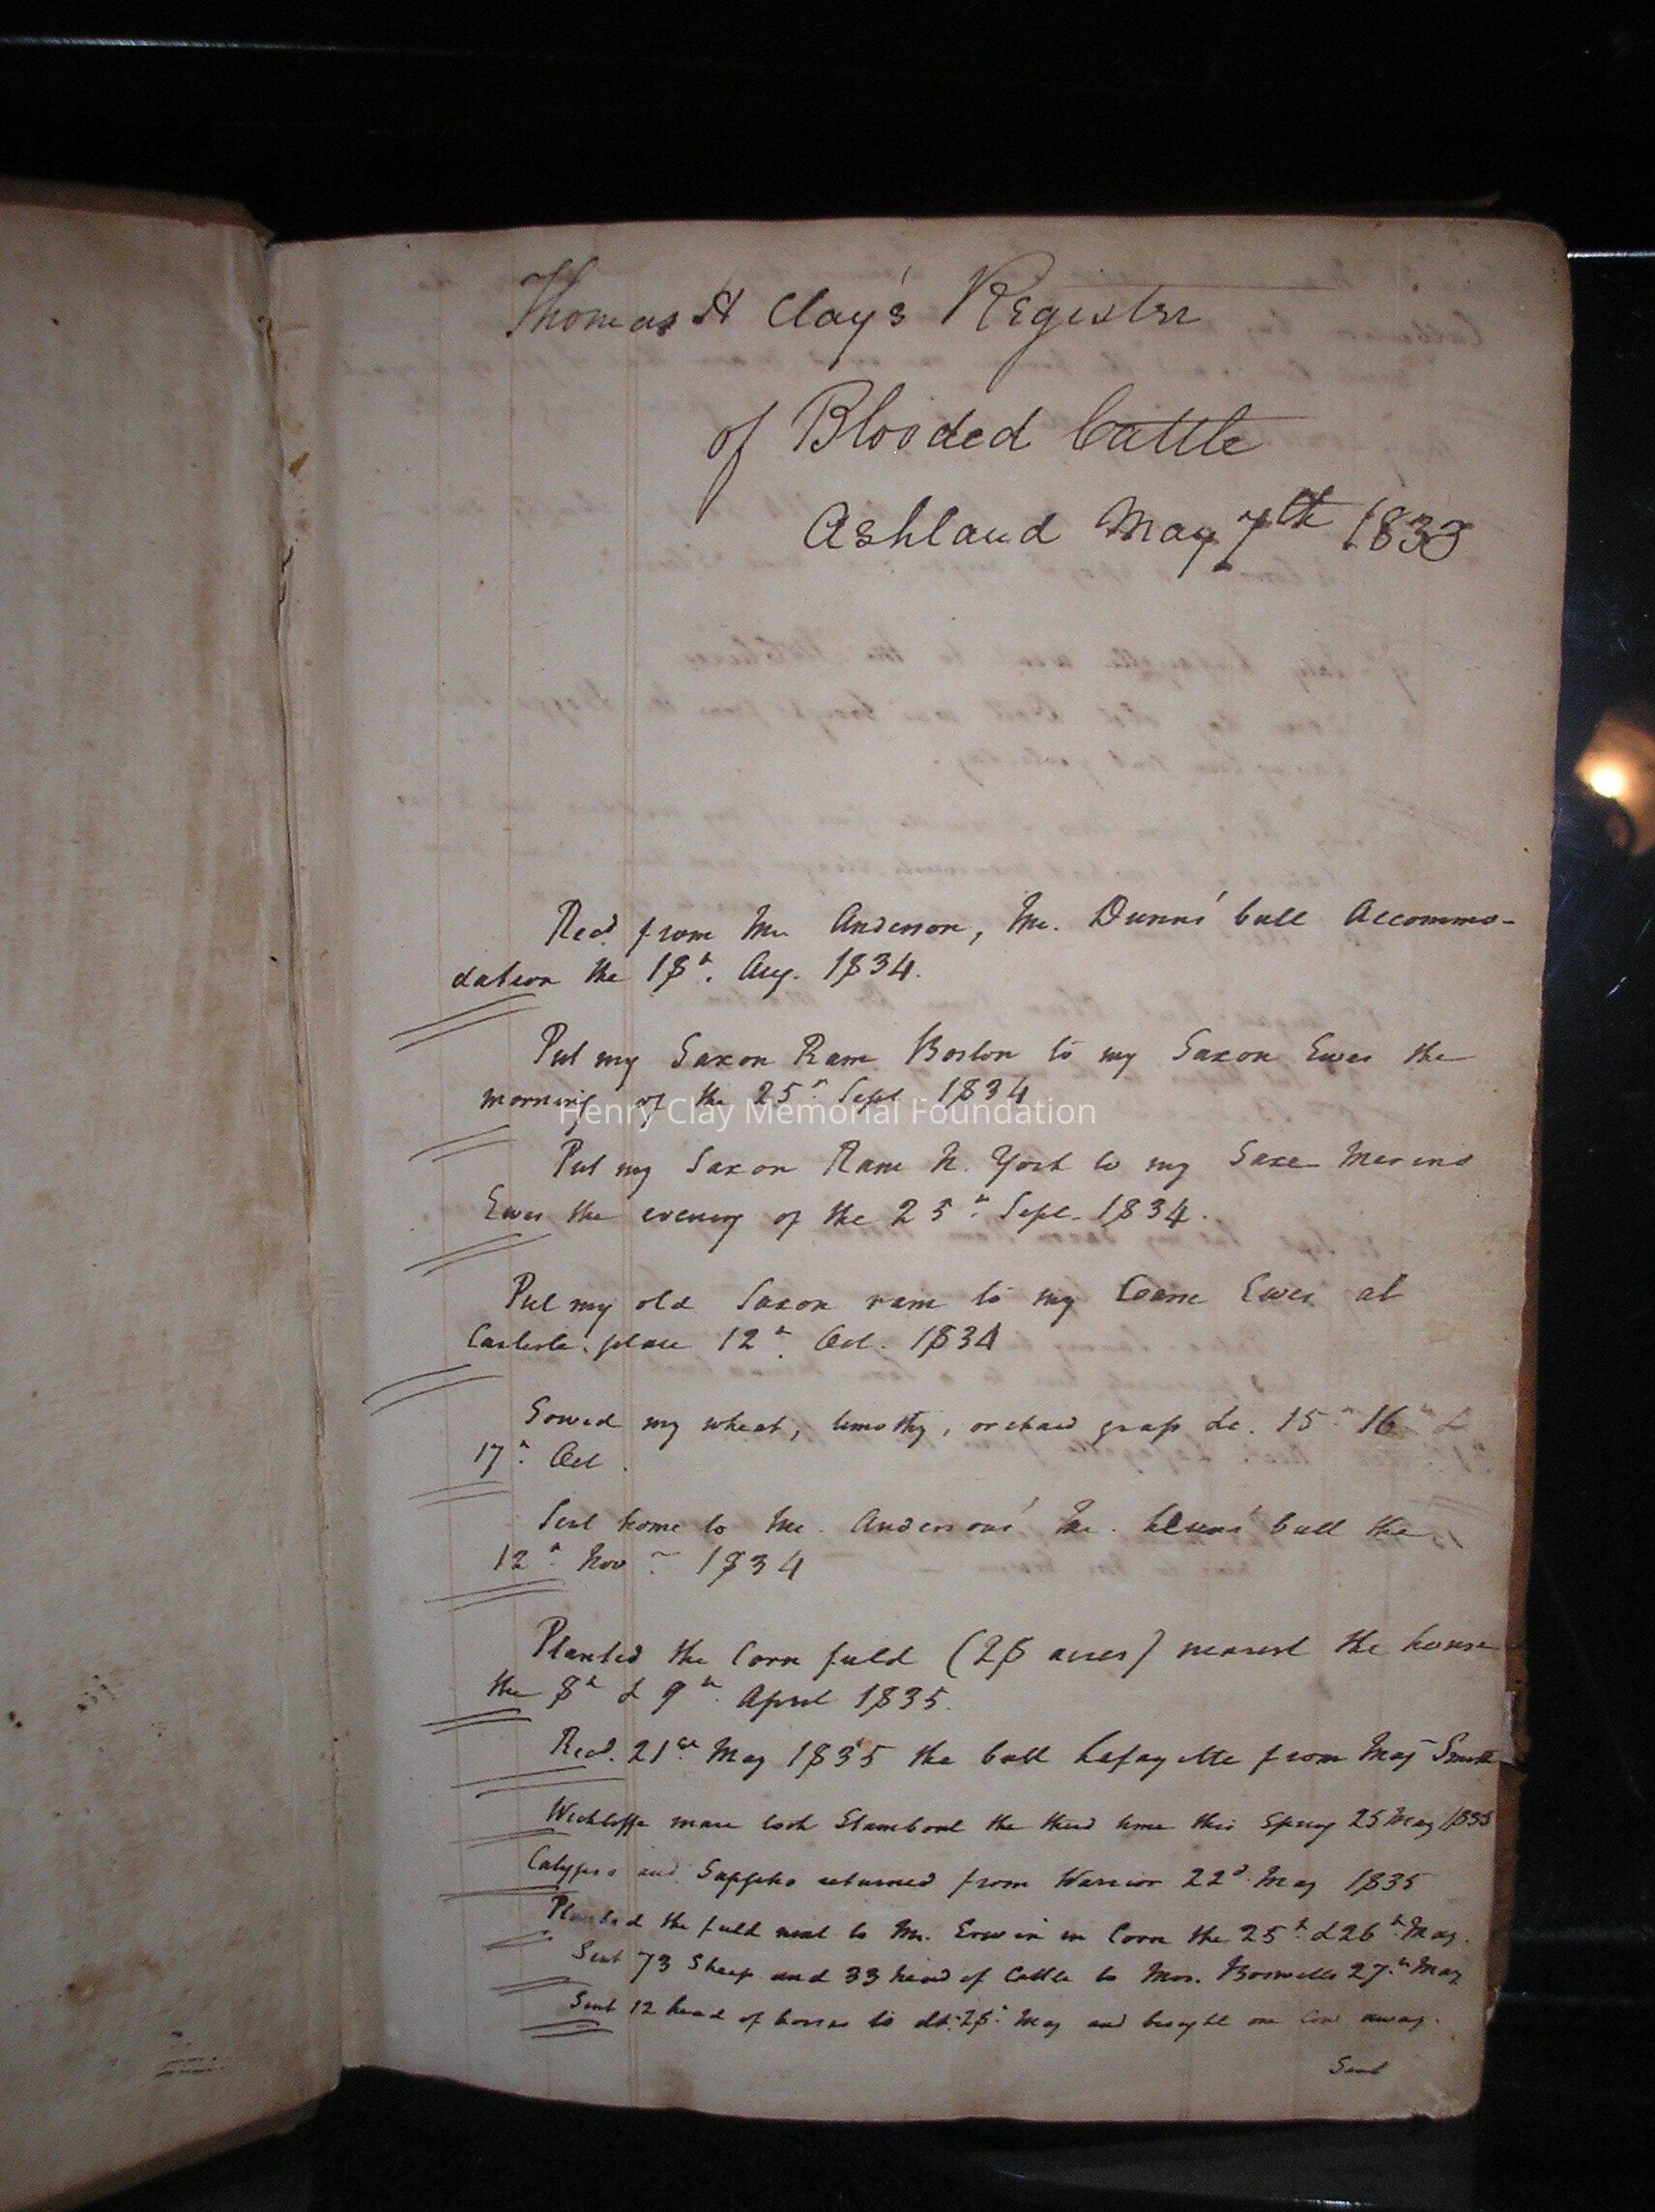 Thomas H Clay's Register
of Blooded Cattle
Ashland May 7th 1833
Recd. from Mr. Anderson, Mr. Dunns' bull Accommo-
dation the 18h. Aug. 1834.
Put my Saxon Ram Boston to my Saxon Ewes the
morning of the 25h. Sept 1834
Henry Clay Memorial Foundation
Put my Saxon Ram N. York to my Saxe Merino
Ewes the evening of the 25h. Sept. 1834.
Put my old Saxon ram to my Coarse Ewes at
Carlisle place 12h. Oct. 1834
Sowed my wheat, timothy, orchard grass &c. 15h 16h &
17h. Oct.
Sent home to Mr. Andersons' Mr. Dunns' bull the
12h. Nov. 1834
Planted the Corn field (28 acres) nearest the house
the 8h & 9h. April 1835.
Recd. 21st. May 1835 the bull Lafayette from Maj Smith
Wickliffe mare took Stamboul the third time this Spring 25 May 1835
Calypso and Sappho returned from Warrior 22d. May 1835
Planted the field next to Mr. Erwin in Corn the 25h. & 26h. May.
Sent 73 Sheep and 33 head of Cattle to Mrs. Boswells 27.h May
Sent 12 head of horses to do. 28h May and brought one Cow away.
Sent